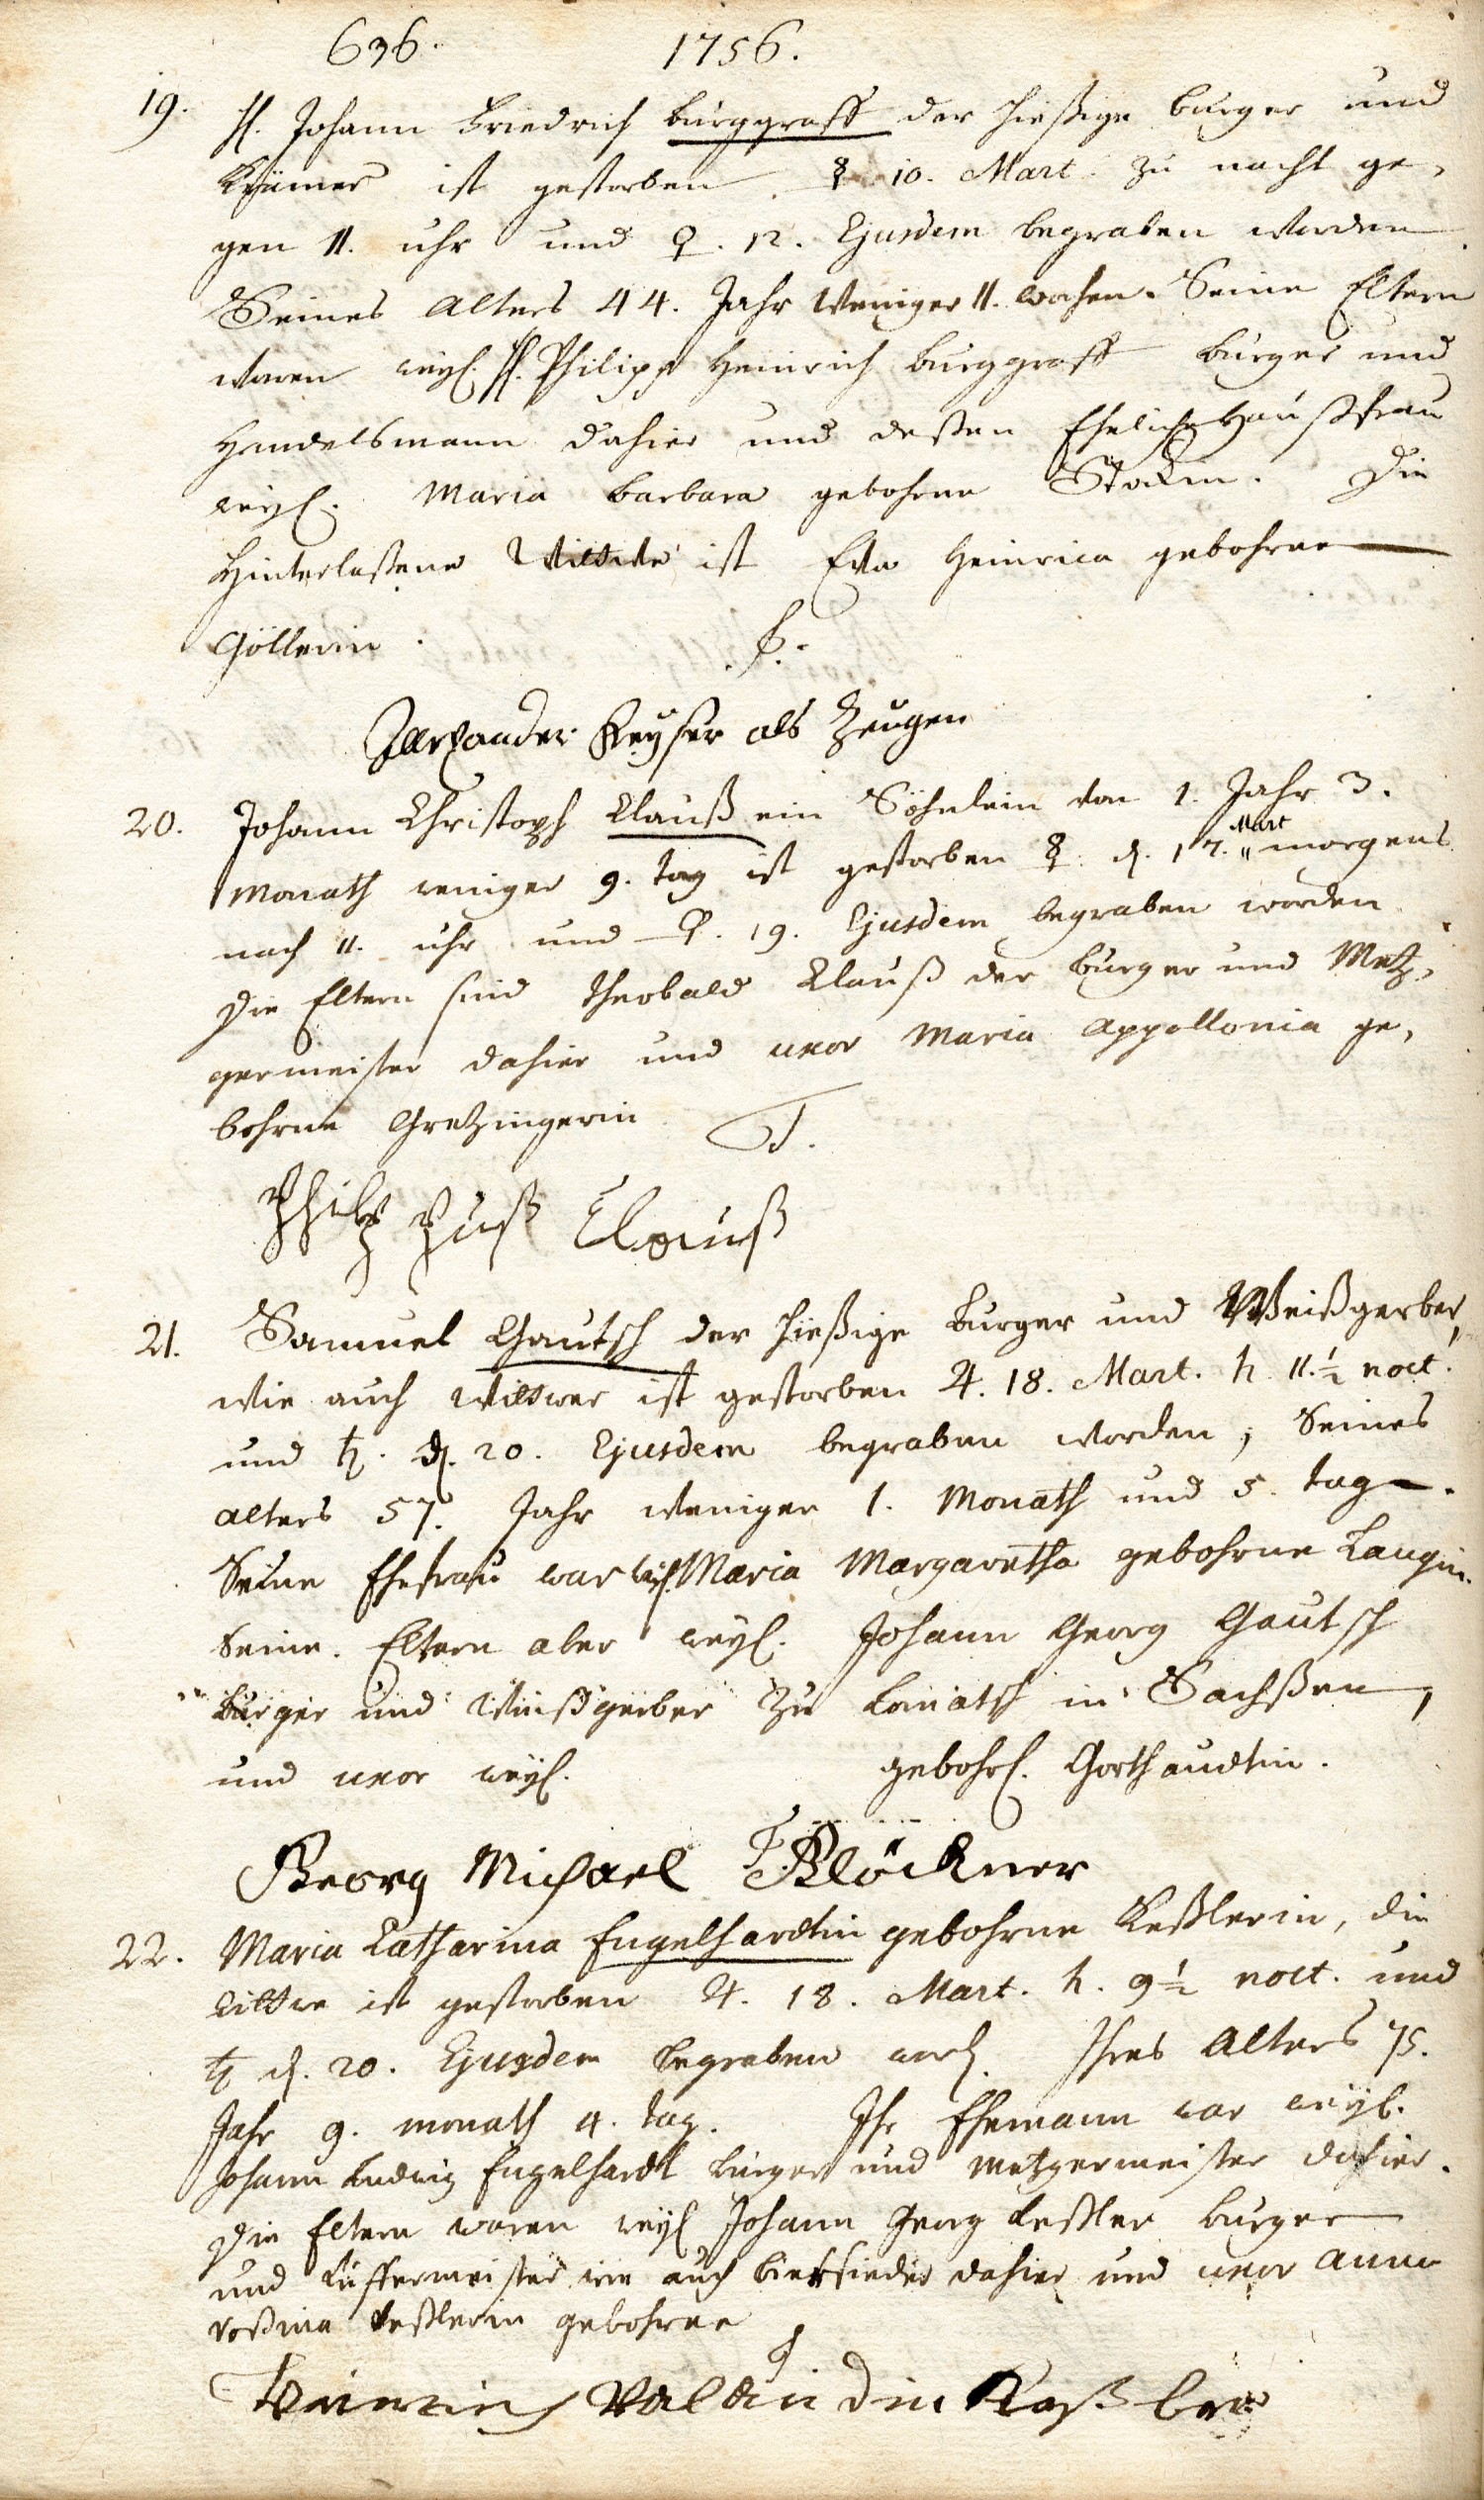 636. 1756.
19. H. Johann Friedrich Burggraff der hießige burger und
Krämer ist gestorben ☿ 10. Mart. zu nacht ge-
gen 11. uhr und ♀. 12. Ejusdem begraben worden
Seines Alters 44. Jahr weniger 11. wochen. Seine Eltern
waren weyl. H. Philipp Heinrich Burggraff burger und
Handelsmann dahier und deßen Eheliche Haußfrau
weyl. Maria Barbara gebohrne Stöckin. Die
Hinterlaßene Wittwe ist Eva Heinrica gebohrne
Göllerin.
Keyser als Zeugen
20. Johann Christoph Clauß ein Söhnlein von 1. Jahr 3.
Monath weniger 9. tag ist gestorben ☿ d. 17. Mart morgens
nach 11. uhr und ♀. 19. Ejusdem begraben worden
Die Eltern sind Theobald Clauß der burger und Metz-
germeister dahier und uxor Maria Appollonia ge-
bohrne Gretzingerin T.
Philp Clauß
21. Samuel Gautsch der hießige Burger und Weißgerber,
wie auch Wittwer ist gestorben ♃. 18. Mart. h. 11.½ noct.
und ♄. d. 20. Ejusdem begraben worden, Seines
alters 57. Jahr weniger 1. Monath und 5. tag.
Seine Ehefrau war weyl. Maria Margaretha gebohrne Langin.
Seine Eltern aber weyl. Johann Georg Gautsch
Burger und Weißgerber zu in Sachßen,
und uxor weyl. gebohrl.
Georg Michael Blöckner
22. Maria Catharina Engelhardtin gebohrne Keßlerin, die
wittwe ist gestorben ♃. 18. Mart. h. 9½ noct. und
♄ d. 20. Ejusdem begraben word. Ihres Alters 75.
Jahr 9. monath 4. tag. Ihr Ehemann war weyl.
Johann Ludwig Engelhardt burger und Metzgermeister dahier.
Die Eltern waren weyl Johann Georg Keßler burger
und Küffermeister wie auch bierßieder dahier und uxor Anna
Roßina Keßlerin gebohrne